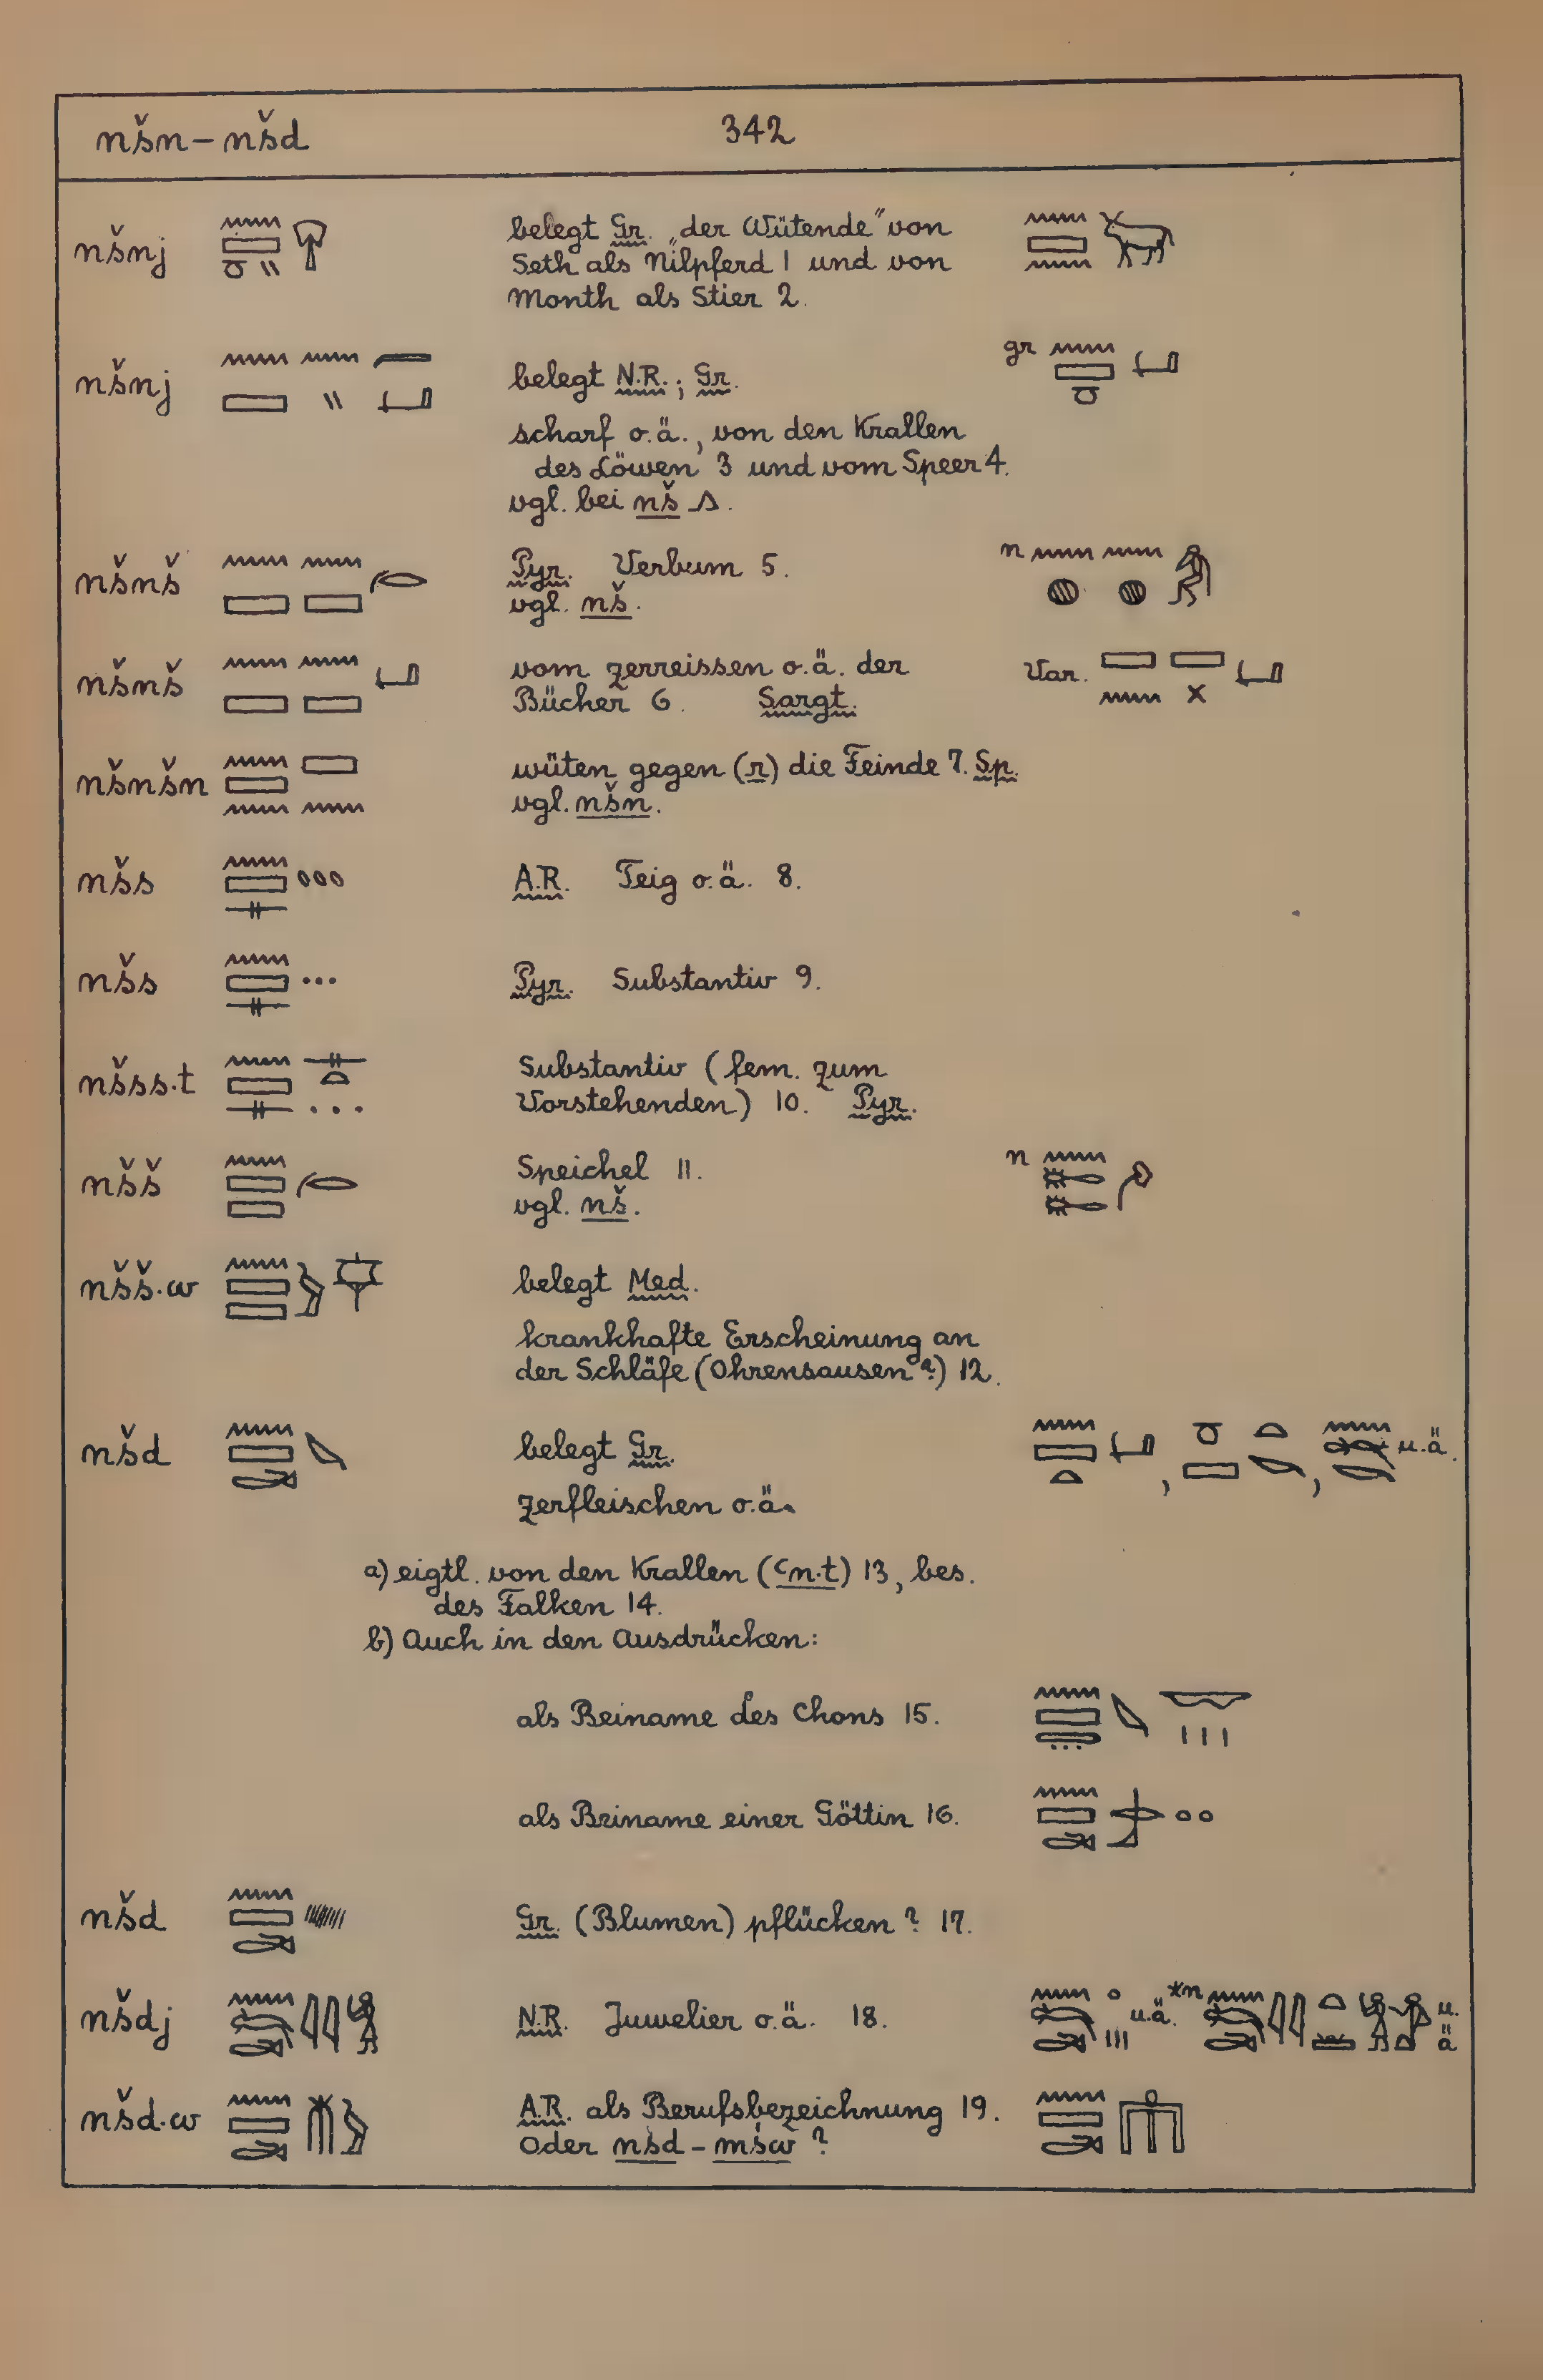 nšn – nšd 342
nšnj belegt Gr. „der Wütende" von
Seth als Nilpferd 1 und von
Month als Stier 2.
nšnj belegt N.R.; Gr. gr
scharf o.ä., von den Krallen
des Löwen 3 und vom Speer 4.
vgl. bei nš
nšnš Pyr. Verbum 5. n
vgl. nš.
nšnš vom zerreissen o.ä. der Var.
Bücher 6. Sargt.
nšnšn wüten gegen (r) die Feinde 7. Sp.
vgl. nšn.
nšs A.R. Teig o.ä. 8.
nšs Pyr. Substantiv 9.
nšss.t Substantiv (fem. zum
Vorstehenden) 10. Pyr.
nšš Speichel 11. n
vgl. nš.
nšš.w belegt Med.
krankhafte Erscheinung an
der Schläfe (Ohrensausen?) 12.
nšd belegt Gr. , , u.ä.
zerfleischen o.ä.
a) eigtl. von den Krallen (ꜥn.t) 13, bes.
des Falken 14.
b) Auch in den Ausdrücken:
als Beiname des Chons 15.
als Beiname einer Göttin 16.
nšd Gr. (Blumen) pflücken? 17.
nšdj N.R. Juwelier o.ä. 18. u.ä. *n u.ä
nšd.w A.R. als Berufsbezeichnung 19.
oder nšd – mśw?